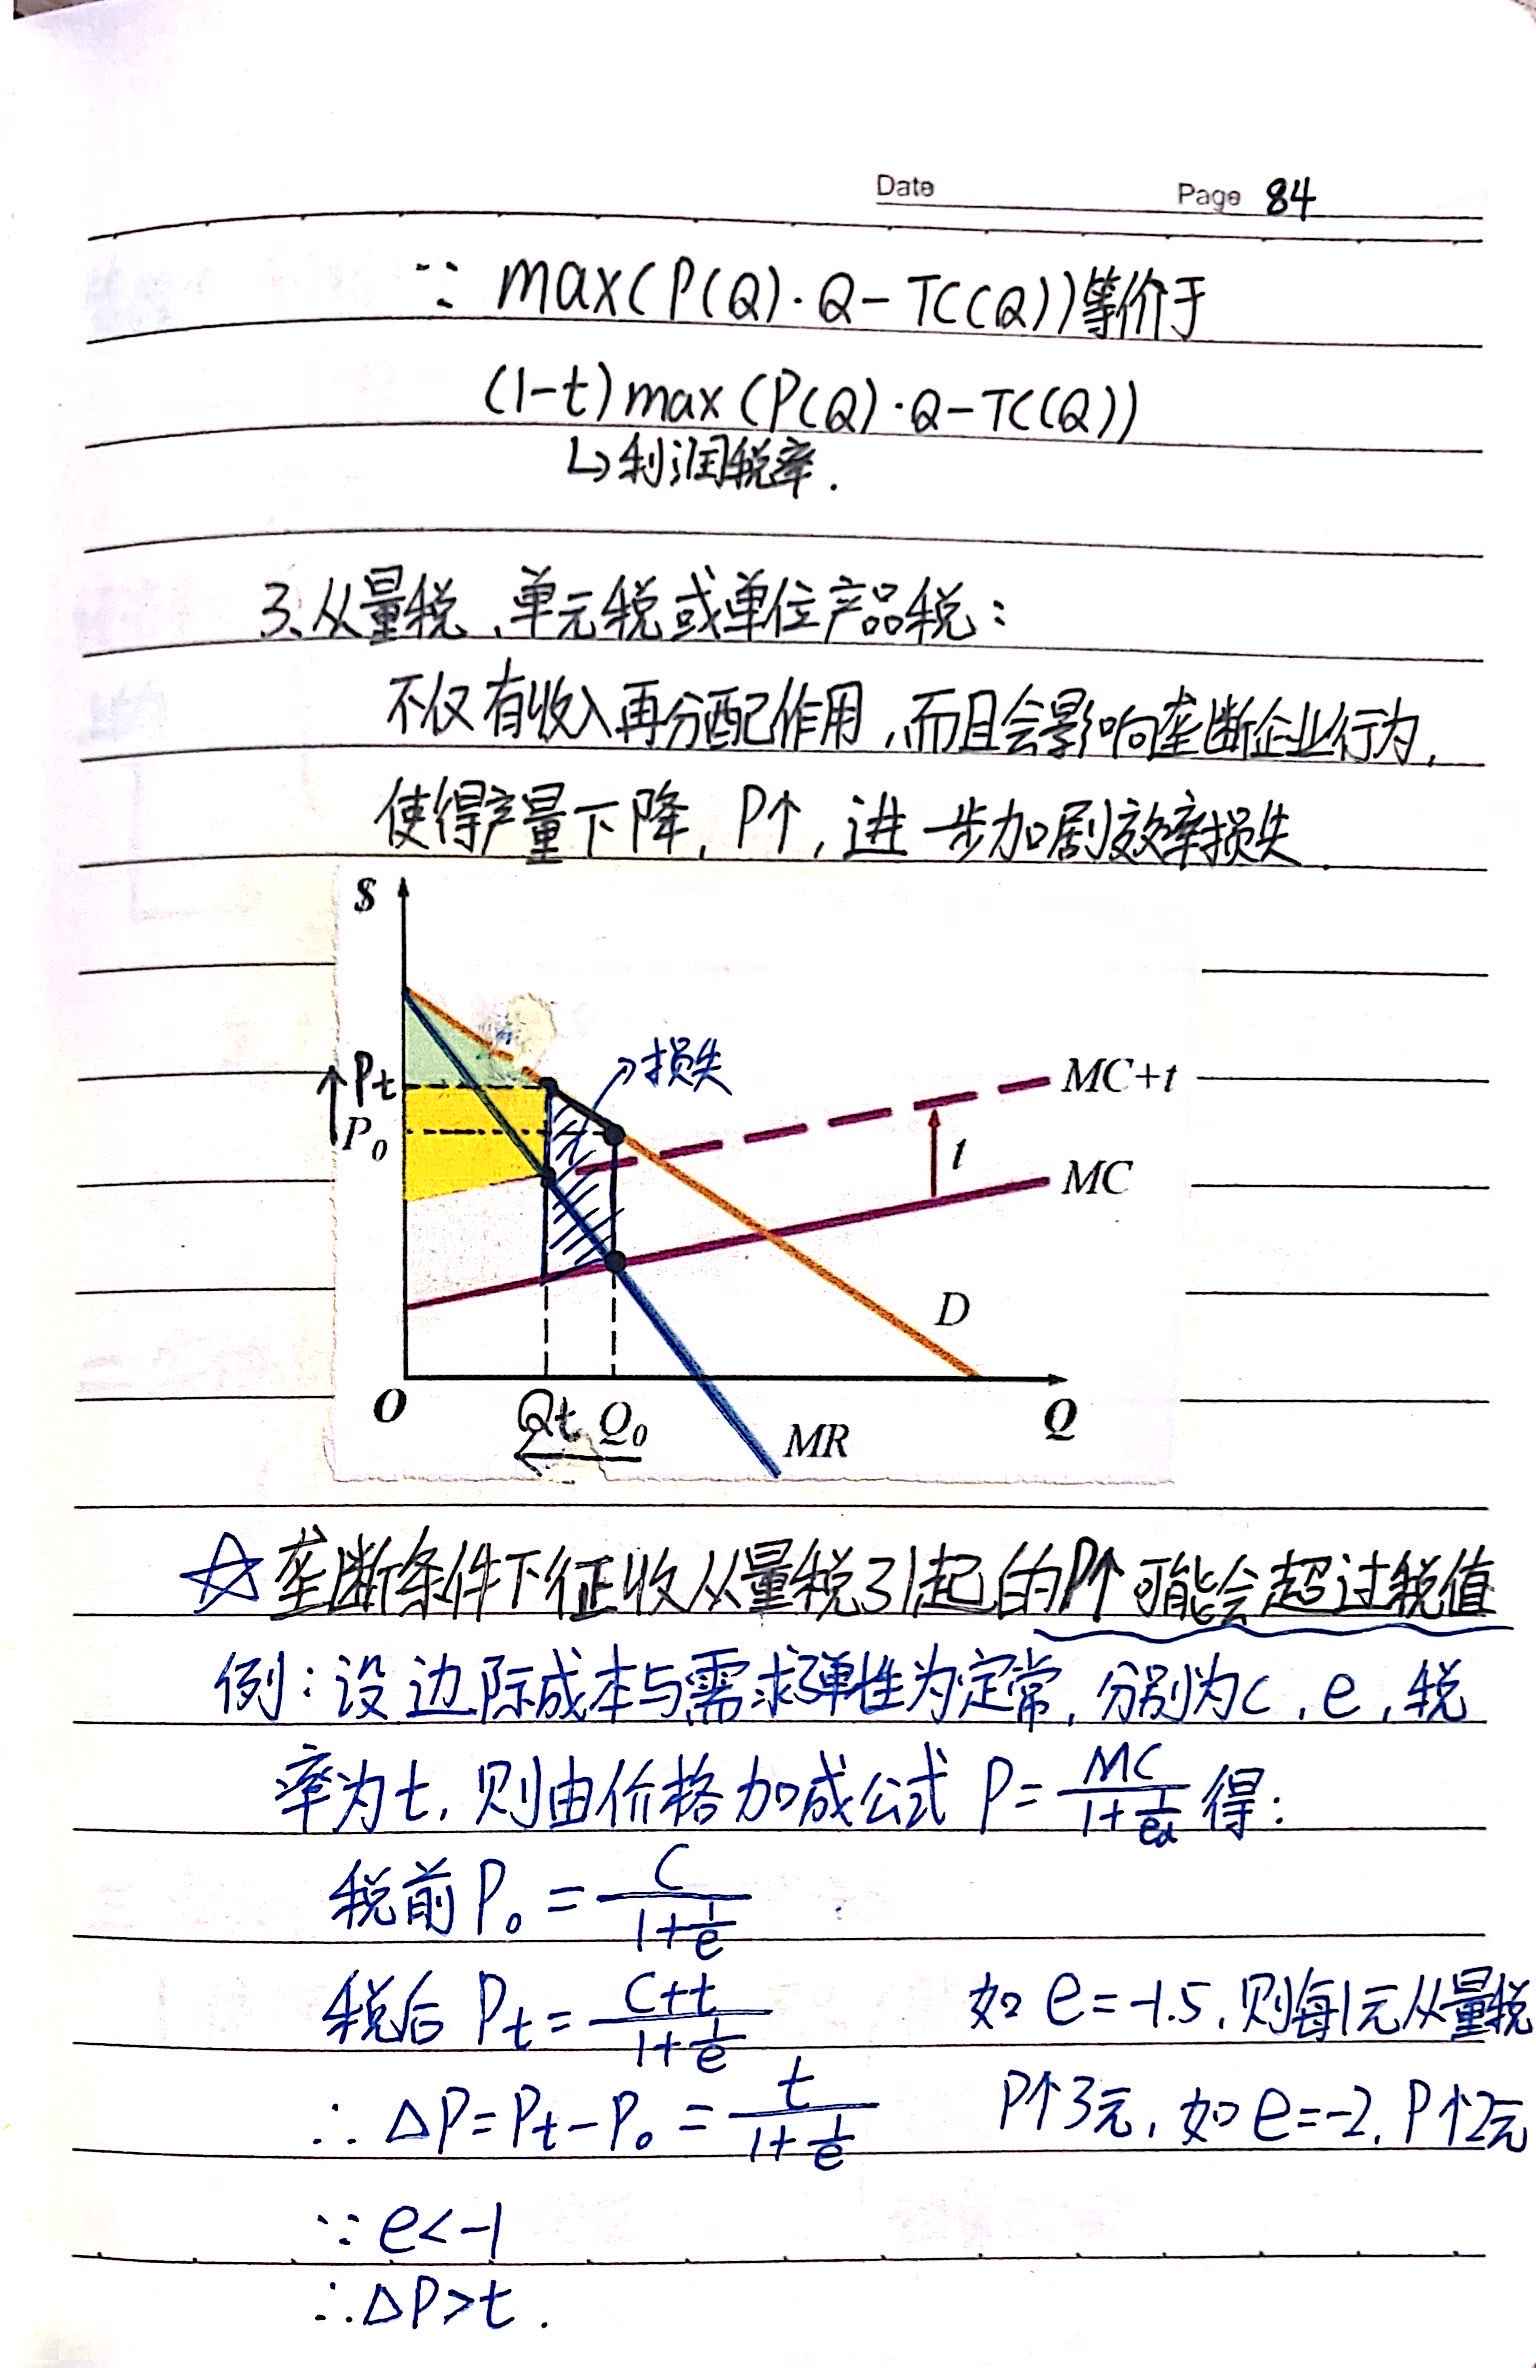 Date Page 84
∵ max(P(Q)·Q-TC(Q))等价于
(1-t)max(P(Q)·Q-TC(Q))
↳利润税率.
3、从量税、单元税或单位产品税：
不仅有收入再分配作用,而且会影响垄断企业行为,
使得产量下降,P↑,进一步加剧效率损失.
$
损失
↑Pt
P₀
MC+t
t
MC
D
O
Qt Q₀
←
MR
Q
☆垄断条件下征收从量税引起的P↑可能会超过税值
例:设边际成本与需求弹性为定常,分别为c,e,税
率为t,则由价格加成公式 P=MC/(1+1/ed) 得:
税前P₀=C/(1+1/e)
税后Pt=(C+t)/(1+1/e) 如e=-1.5,则每1元从量税
∴ΔP=Pt-P₀=t/(1+1/e) P↑3元,如e=-2,P↑2元
∵e<-1
∴ΔP>t.